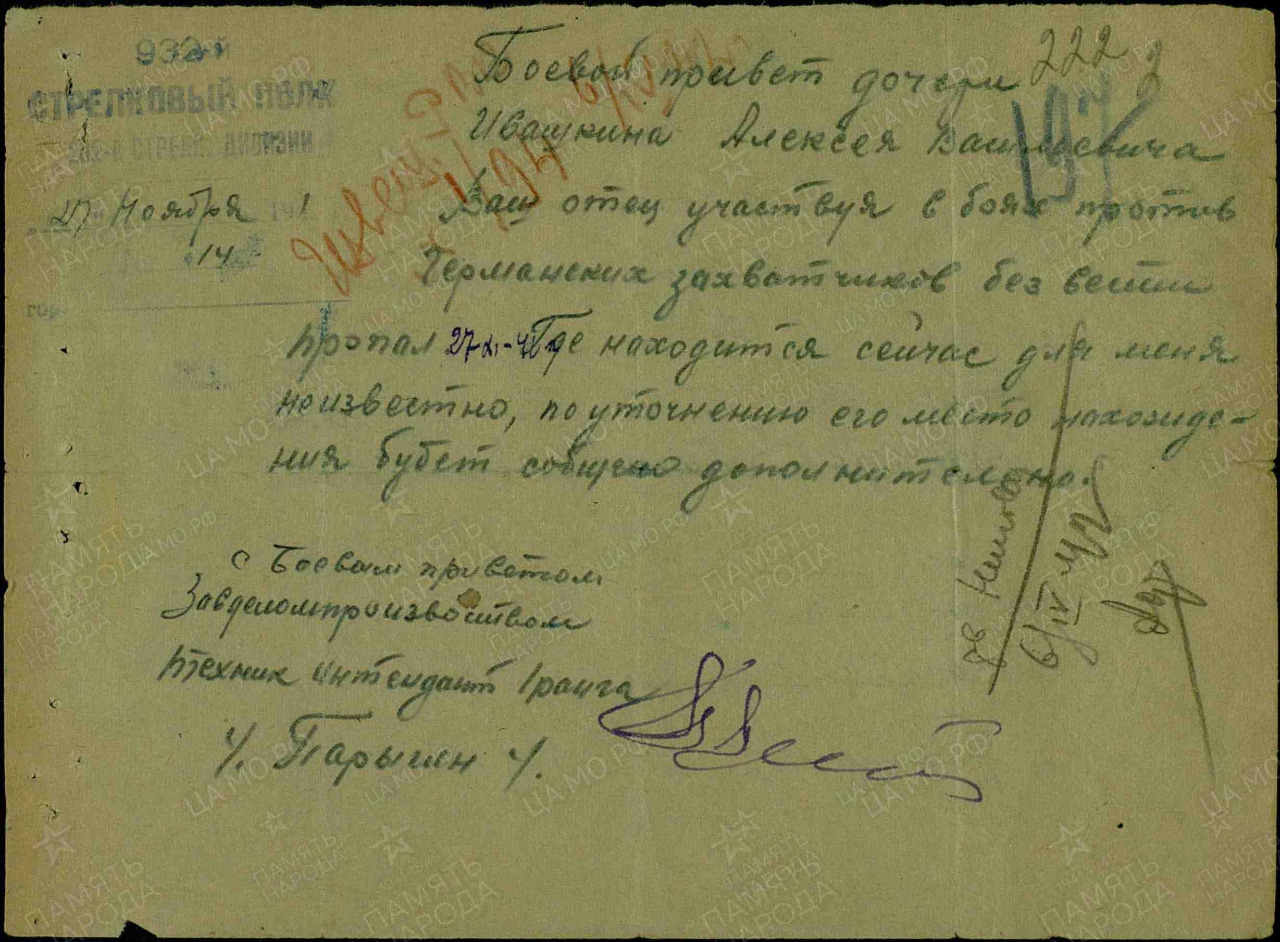 СТРЕЛКОВЫЙ ПОЛК
СТРЕЛК. ДИВИЗИИ
27 Ноября 1
14
гор.
222
197
Извещ.
Боевой привет дочери
Ивашкина Алексея Васильевича
Ваш отец участвуя в боях против
Германских захватчиков без вести
пропал 27-XI-41 Где находится сейчас для меня
неизвестно, по уточнению его место нахожде-
ния будет собщено дополнительно.
С Боевым приветом
Завделомпроизвоством
техник интендант 1 ранга
Ч. Парыгин Ч.
6/IV 42
ПАМЯТЬ НАРОДА
ЦА МО.РФ